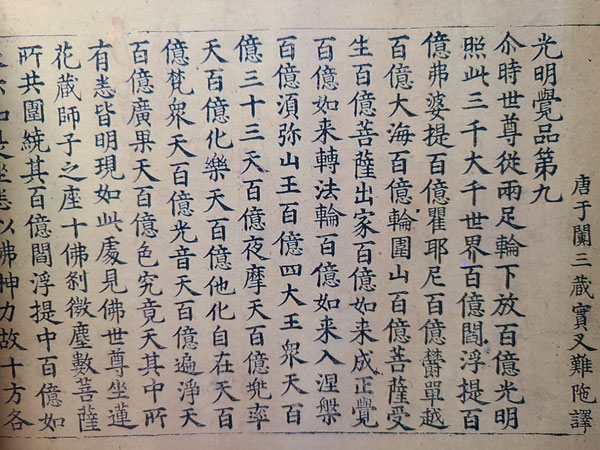 唐于闐三藏實叉難陁譯
光明覺品第九
尒時世尊從兩足輪下放百億光明
照此三千大千世界百億閻浮提百
億弗婆提百億瞿耶尼百億欝單越
百億大海百億輪圍山百億菩薩受
生百億菩薩出家百億如来成正覺
百億如来轉法輪百億如来入涅槃
百億湏弥山王百億四大王衆天百
億三十三天百億夜摩天百億兠率
天百億化樂天百億他化自在天百
億梵衆天百億光音天百億遍淨天
百億廣果天百億色究竟天其中所
有悉皆明現如此處見佛世尊坐蓮
花蔵師子之座十佛剎微塵數菩薩
所共圍繞其百億閻浮提中百億如
来亦如是坐悉以佛神力故十方各